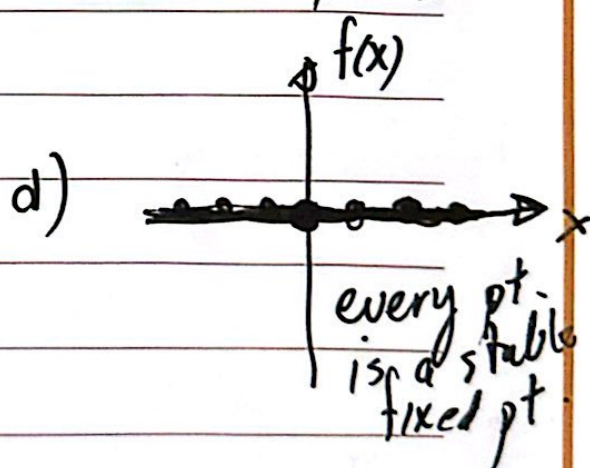 f(x)
d)
x
every pt.
is a stable
fixed pt.